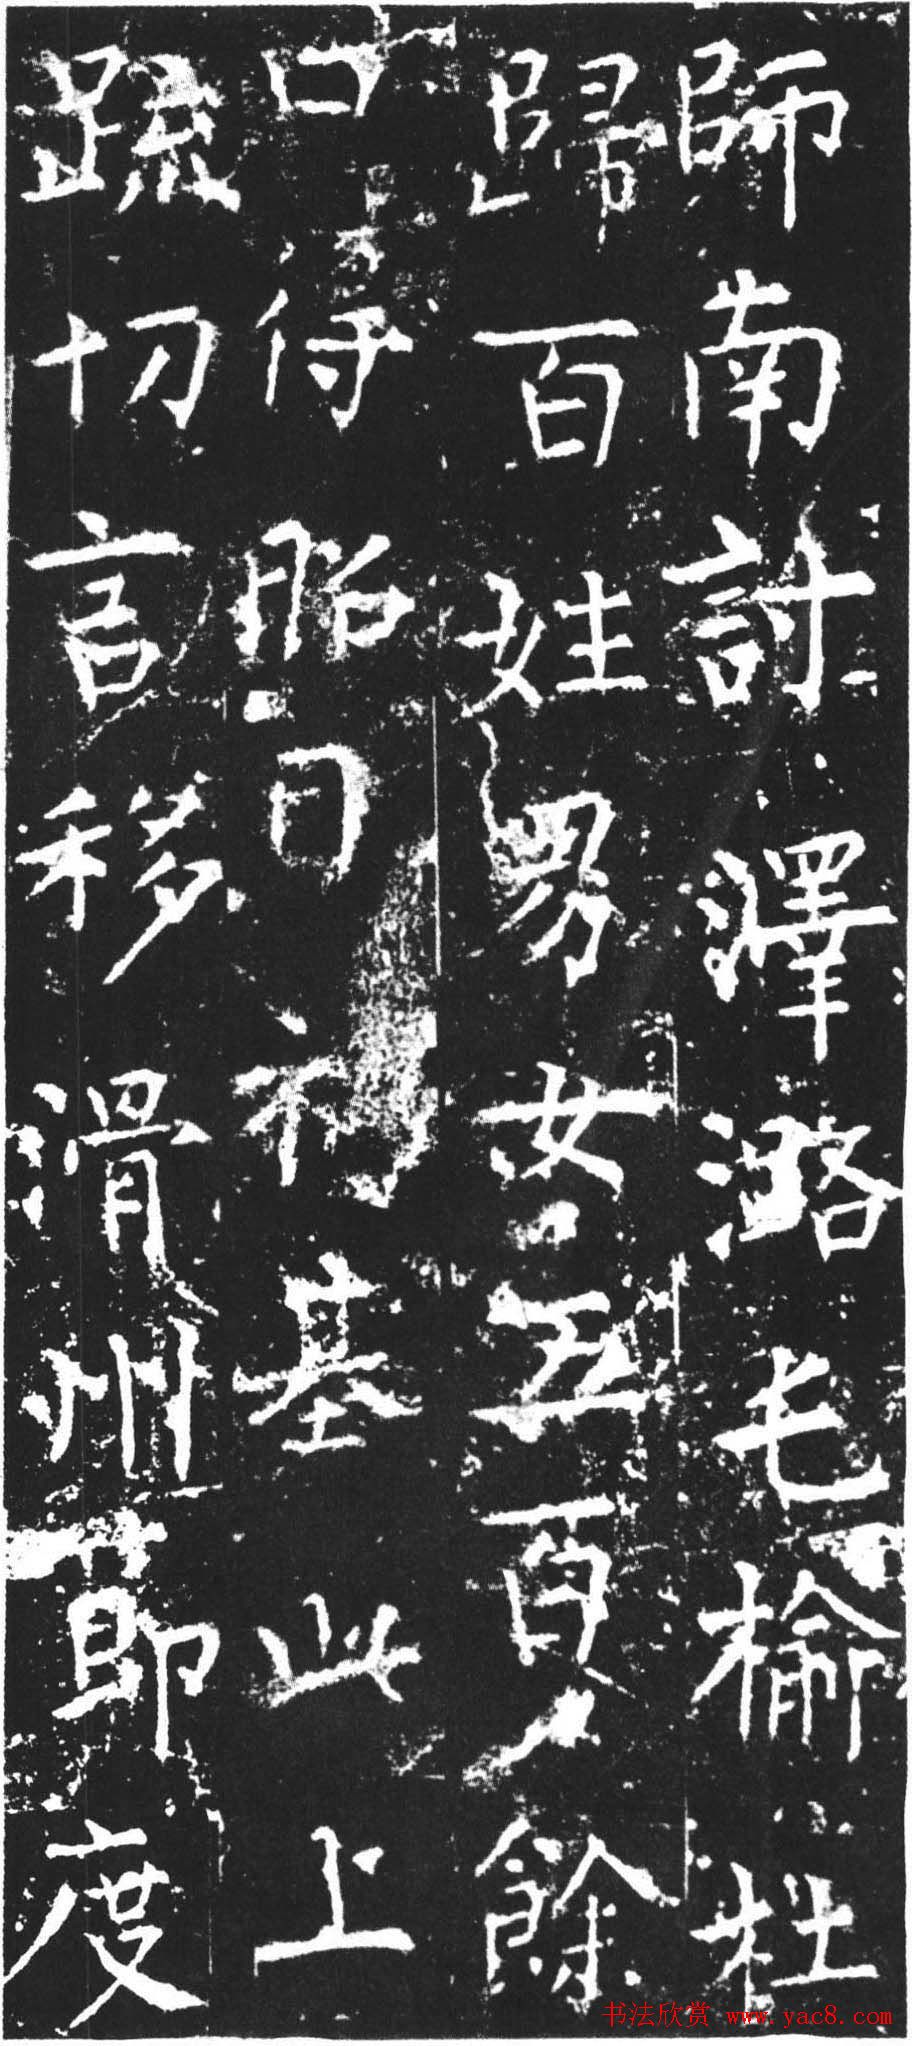 師南討澤潞毛榆社
歸百姓男女五百餘
口得昭日福基此上
疏切言移滑州節度
书法欣赏 www.yac8.com